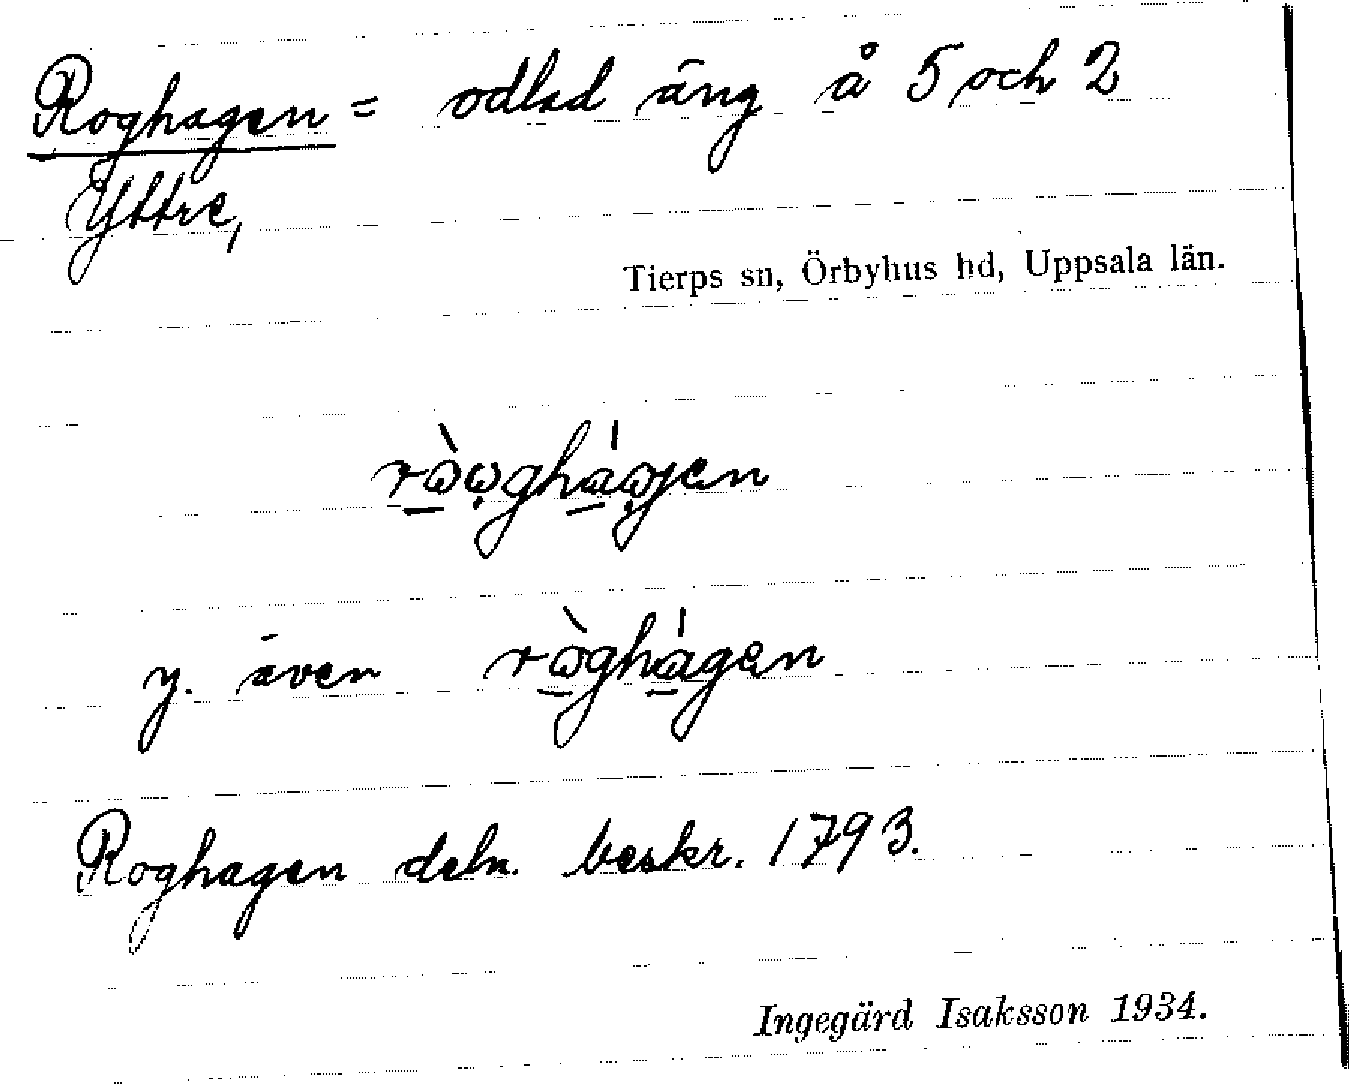 Roghagen = odlad äng å 5 och 2
Yttre,
Tierps sn, Örbyhus hd, Uppsala län.
y. även
Roghagen deln. beskr. 1793.
Ingegärd Isaksson 1934.